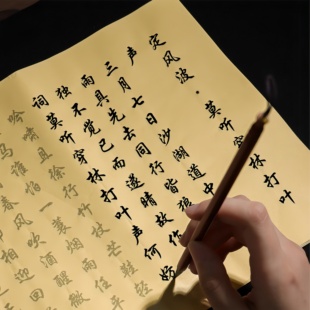 定风波·莫听穿林打叶
声
三月七日沙湖道中
雨具先去同行皆狼
独不觉已而遂晴故作
词
莫听穿林打叶声何妨
吟啸且徐行竹杖芒鞋轻
马谁怕一蓑烟雨任平
春风吹酒醒微
迎回